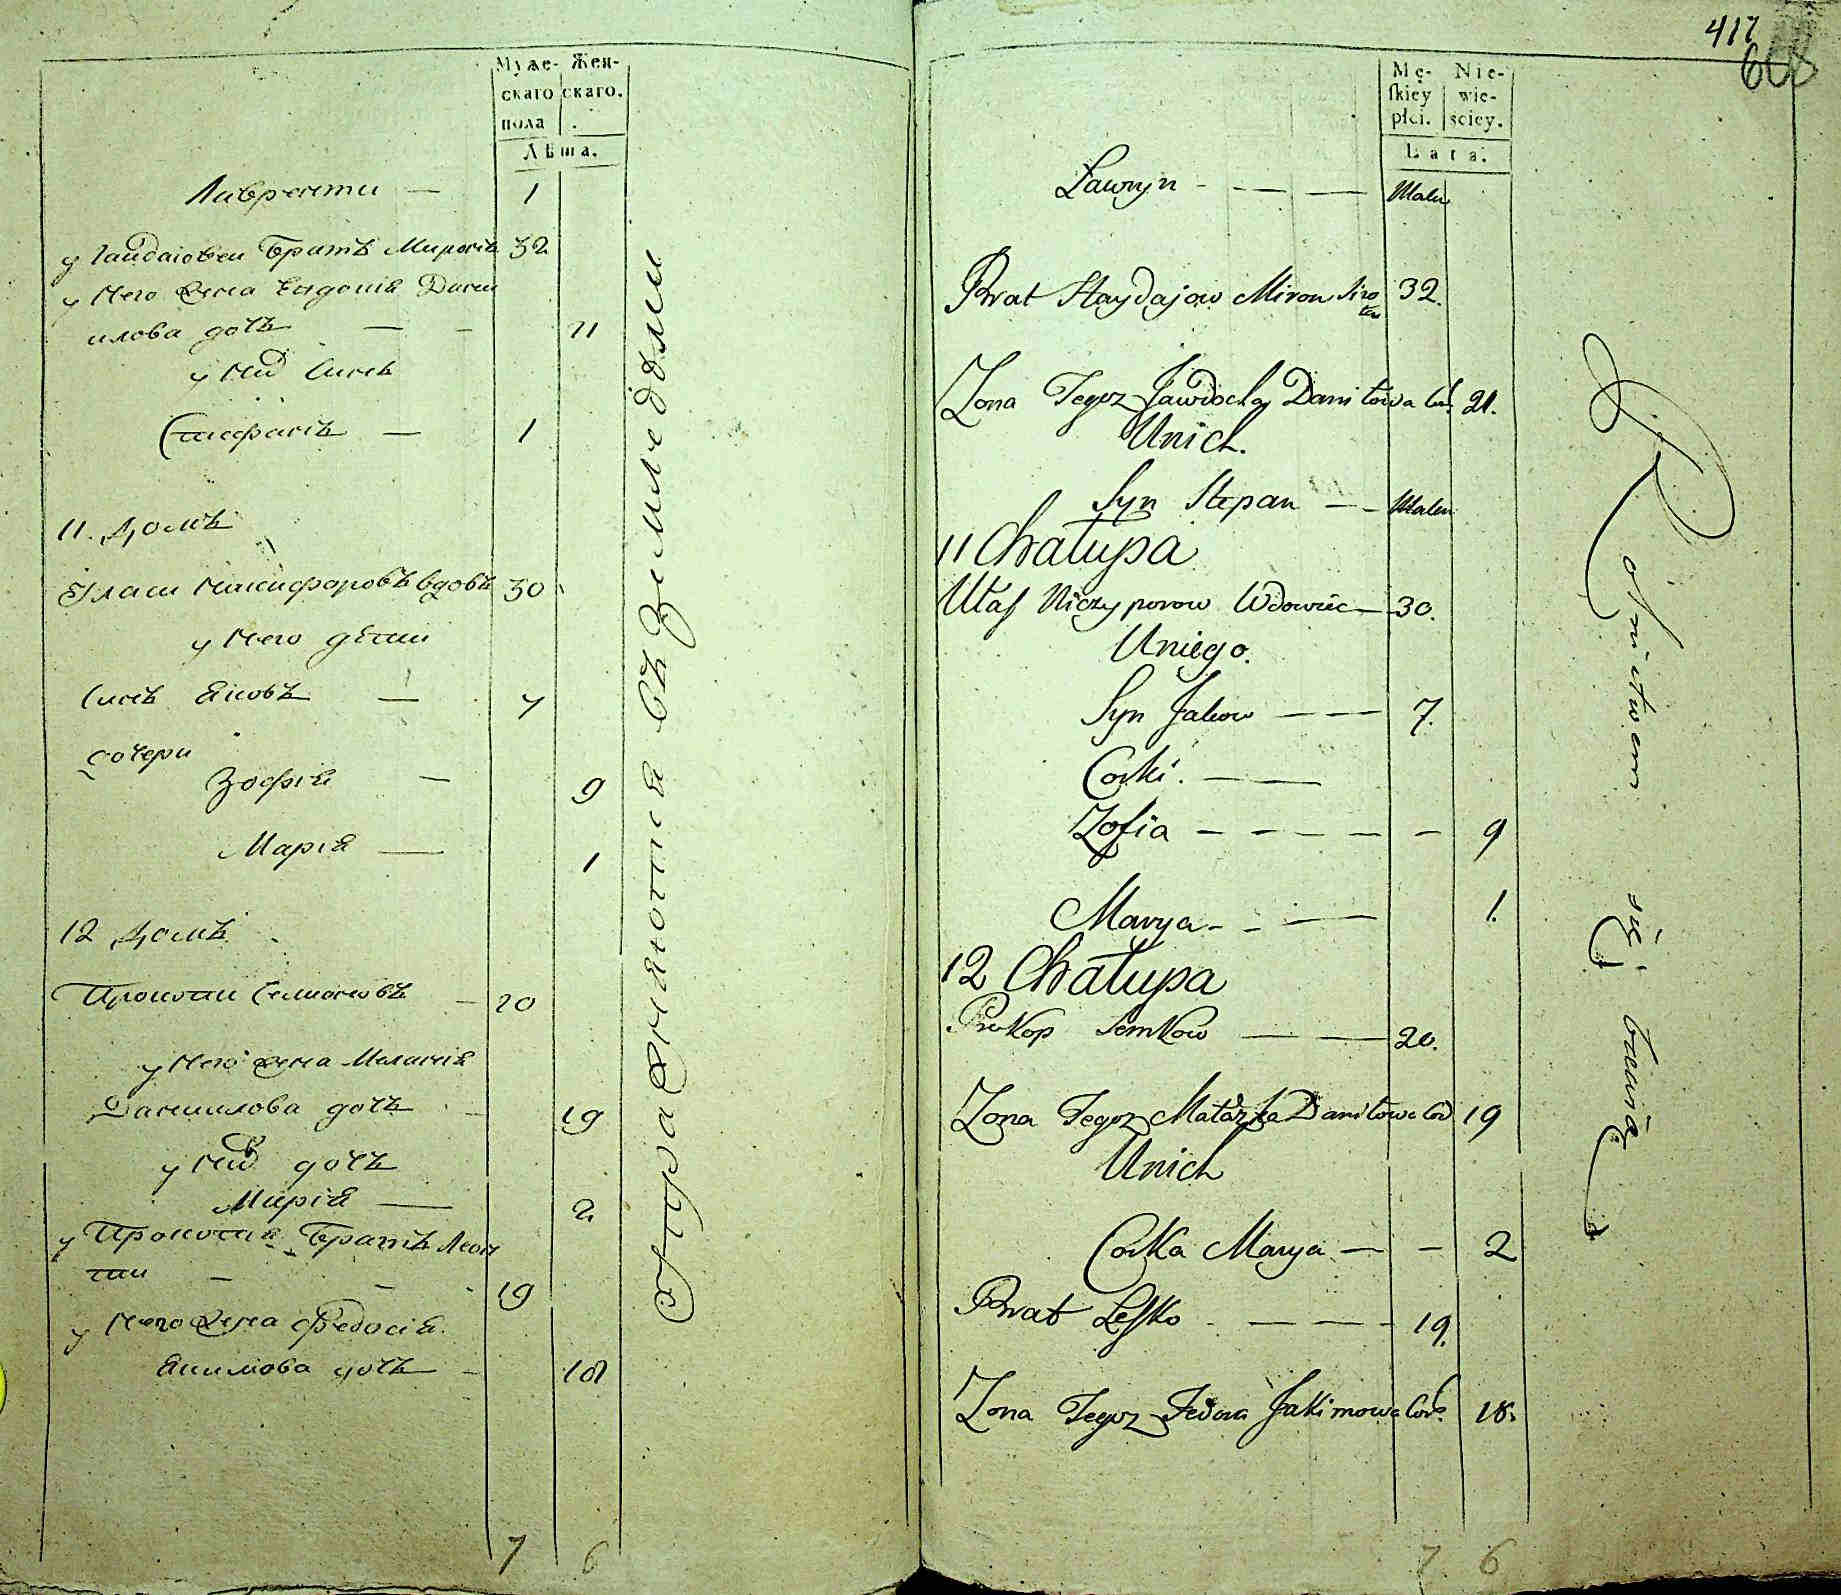 Муже- Жен-
скаго скаго.
пола
Лѣта.
Лаврентіи — 1
у Гайдаювеи братъ Миронъ 32
у него жена Евдокія Дани
илова дочь — - 21
у ниͯ Синъ
Стефанъ — 1
11. Домъ
Власи Никифоровъ вдовъ 30
у него дѣти
Синъ Яковъ — 7
дочери
Зофія — 9
Марія — 1
12 Домъ
Прокопи Семионовъ — 20
у него жена Маланія
Даниилова дочь - 19
у ниͯ дочь
Марія — 2
у Прокопия братъ Леон
тии - - 19
у него жена Федосія
Якимова дочь - 18
7 6
упражняются въ земледѣліи
417
608
Mę- Nie-
skiey wie-
płci. sciey.
Lata.
Ławryn - — — — Małe
Brat Haydajow Miron 32.
Zona Tegoz Jawdocha Daniłowa Cor. 21.
Unich.
Syn Stepan — - Małen
11 Chałupa
Ułas Niczyporow Wdowiec — 30.
Uniego.
Syn Jakow — — — 7.
Corki. — — —
Zofia — — — — — — 9
Marya - - — — 1.
12 Chałupa
Prokop Semkow — — — 20.
Zona Tegoz Małaszka Daniłowa Cor 19
Unich
Corka Marya — — 2
Brat Lesko - — — — 19.
Zona Tegoz Fedora Jakimowa Cor. 18.
7 6
Rolnictwem się bawią